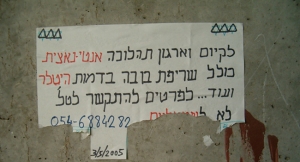 לקיום וארגון תהלוכה אנטי-נאצית
כולל שריפת בובה בדמות היטלר
ועוד... לפרטים להתקשר לטל
054-6884282 לא ל
3/5/2005